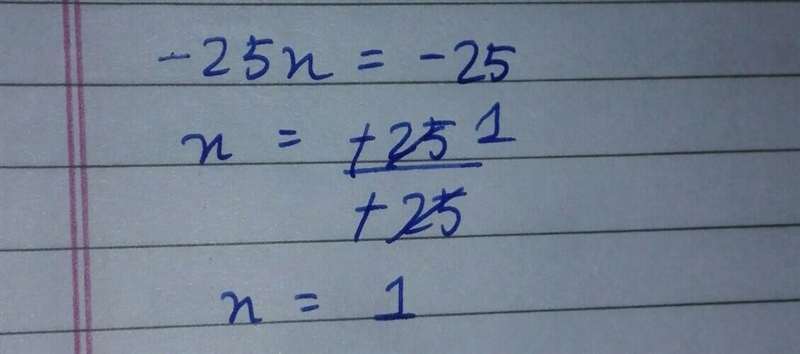 -25x = -25
x = +25 1
+25
x = 1